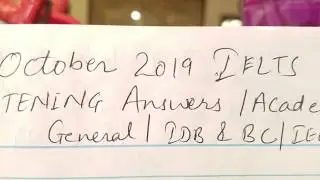 October 2019 IELTS
TENING Answers / Acade
General / IDB & BC / IE